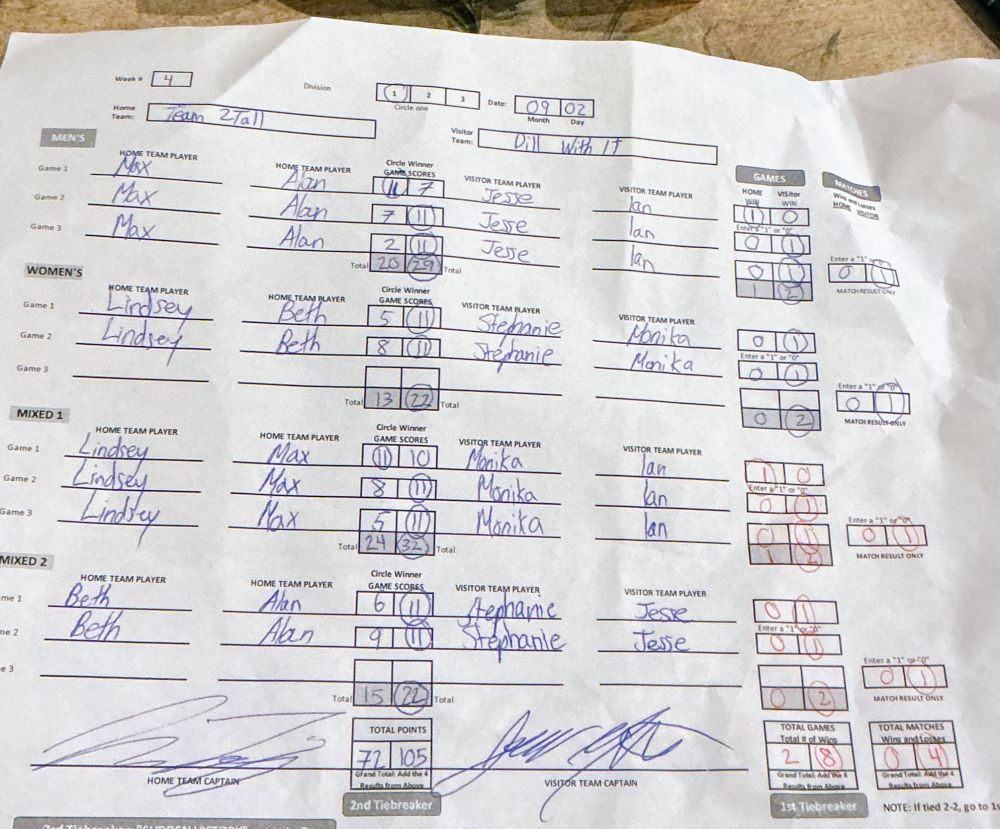 Week # 4 Division 1 2 3 Date: 09 02
Circle one Month Day
Home Team: Team 2Tall Visitor Team: Dill With It
MEN'S GAMES MATCHES
HOME TEAM PLAYER HOME TEAM PLAYER Circle Winner GAME SCORES VISITOR TEAM PLAYER VISITOR TEAM PLAYER HOME WIN Visitor WIN Wins and Losses HOME VISITOR
Game 1 Max Alan 11 7 Jesse Ian 1 0
Enter a "1" or "0"
Game 2 Max Alan 7 11 Jesse Ian 0 1
Game 3 Max Alan 2 11 Jesse Ian 0 1 Enter a "1" or "0"
Total 20 29 Total 1 2 0 1
MATCH RESULT ONLY
WOMEN'S
HOME TEAM PLAYER HOME TEAM PLAYER Circle Winner GAME SCORES VISITOR TEAM PLAYER VISITOR TEAM PLAYER
Game 1 Lindsey Beth 5 11 Stephanie Monika 0 1
Enter a "1" or "0"
Game 2 Lindsey Beth 8 11 Stephanie Monika 0 1
Game 3 Enter a "1" or "0"
Total 13 22 Total 0 2 0 1
MATCH RESULT ONLY
MIXED 1
HOME TEAM PLAYER HOME TEAM PLAYER Circle Winner GAME SCORES VISITOR TEAM PLAYER VISITOR TEAM PLAYER
Game 1 Lindsey Max 11 10 Monika Ian 1 0
Enter a "1" or "0"
Game 2 Lindsey Max 8 11 Monika Ian 0 1
Game 3 Lindsey Max 5 11 Monika Ian 0 1 Enter a "1" or "0"
Total 24 32 Total 1 2 0 1
MATCH RESULT ONLY
MIXED 2
HOME TEAM PLAYER HOME TEAM PLAYER Circle Winner GAME SCORES VISITOR TEAM PLAYER VISITOR TEAM PLAYER
me 1 Beth Alan 6 11 Stephanie Jesse 0 1
Enter a "1" or "0"
me 2 Beth Alan 9 11 Stephanie Jesse 0 1
e 3 Enter a "1" or "0"
Total 15 22 Total 0 2 0 1
MATCH RESULT ONLY
TOTAL POINTS TOTAL GAMES TOTAL MATCHES
Total # of Wins Wins and Losses
72 105 2 8 0 4
HOME TEAM CAPTAIN Grand Total: Add the 4 Results from Above VISITOR TEAM CAPTAIN Grand Total: Add the 4 Results from Above Grand Total: Add the 4 Results from Above
2nd Tiebreaker 1st Tiebreaker NOTE: If tied 2-2, go to 1s